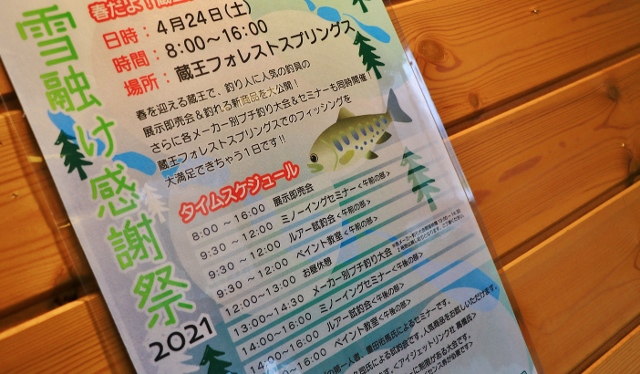 春だよ！蔵王
雪融け感謝祭
2021
日時：4月24日(土)
時間：8:00〜16:00
場所：蔵王フォレストスプリングス
春を迎える蔵王で、釣り人に人気の釣具の
展示即売会&釣れる新商品を大公開！
さらに各メーカー別プチ釣り大会&セミナーも同時開催！
蔵王フォレストスプリングスでのフィッシングを
大満足できちゃう1日です!!
タイムスケジュール
8:00 〜 16:00 展示即売会
9:30 〜 12:00 ミノーイングセミナー<午前の部>
9:30 〜 12:00 ルアー試釣会<午前の部>
9:30 〜 12:00 ペイント教室<午前の部>
12:00〜13:00 お昼休憩
13:00〜14:30 メーカー別プチ釣り大会
14:00〜16:00 ミノーイングセミナー<午後の部>
14:00〜16:00 ルアー試釣会<午後の部>
14:00〜16:00 ペイント教室<午後の部>
氏によるセミナーです。
氏による試釣会です。人気商品をお試しいただけます。